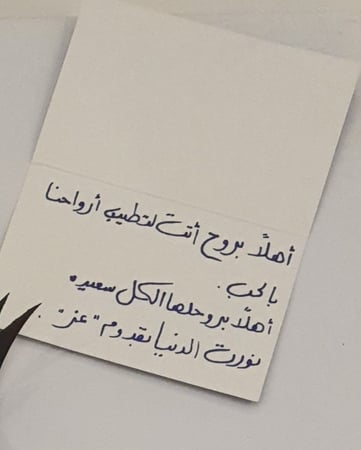 أهلاً بروح أتت لتطيب أرواحنا
بالحب .
أهلاً بروح لها الكل سعيد .
نورت الدنيا بقدوم "عز"